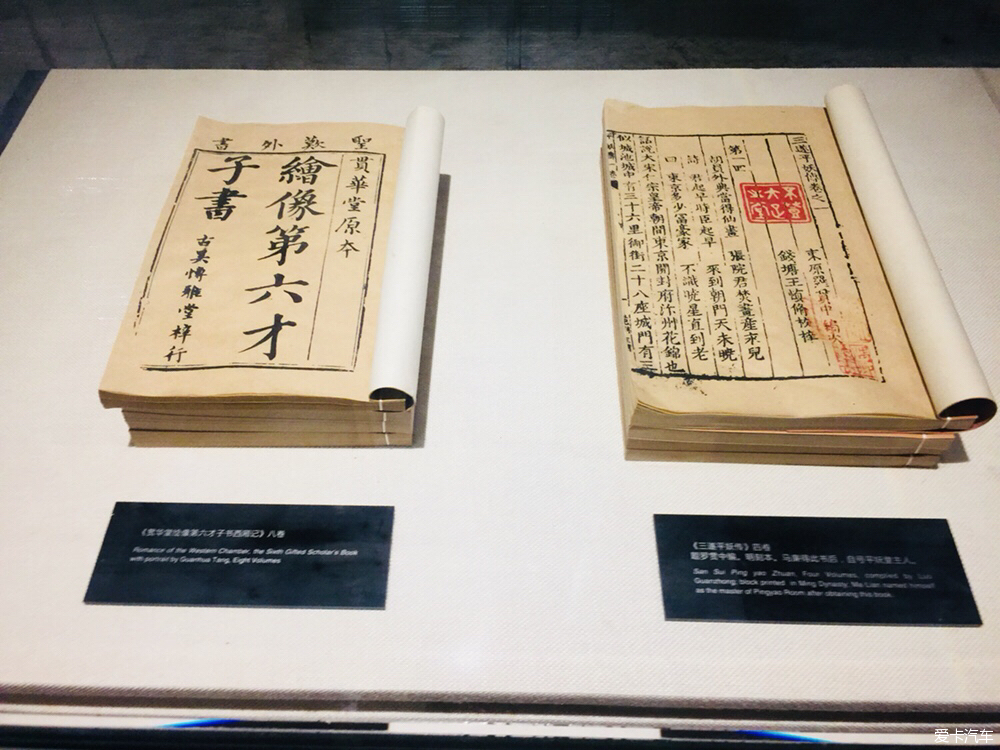 聖歎外書
貫華堂原本
繪像第六才
子書
古吳博雅堂梓行
三遂平妖傳卷之一
東原羅貫中
錢塘王慎脩校梓
不登大雅之堂
第一回
胡員外典當得仙畫 張院君焚畫產永兒
詩 君起早時臣起早 來到朝門天未曉
曰 東京多少富豪家 不識曉星直到老
話說大宋仁宗皇帝朝間東京開封府汴州花錦也
似城池城中有三十六里御街二十八座城門有三
《贯华堂绘像第六才子书西厢记》八卷
Romance of the Western Chamber, the Sixth Gifted Scholar's Book
with portrait by Guanhua Tang, Eight Volumes
《三遂平妖传》四卷
题罗贯中编，明刻本。马廉得此书后，自号平妖堂主人。
San Sui Ping yao Zhuan, Four Volumes, compiled by Luo
Guanzhong; block printed in Ming Dynasty, Ma Lian named himself
as the master of Pingyao Room after obtaining this book.
爱卡汽车